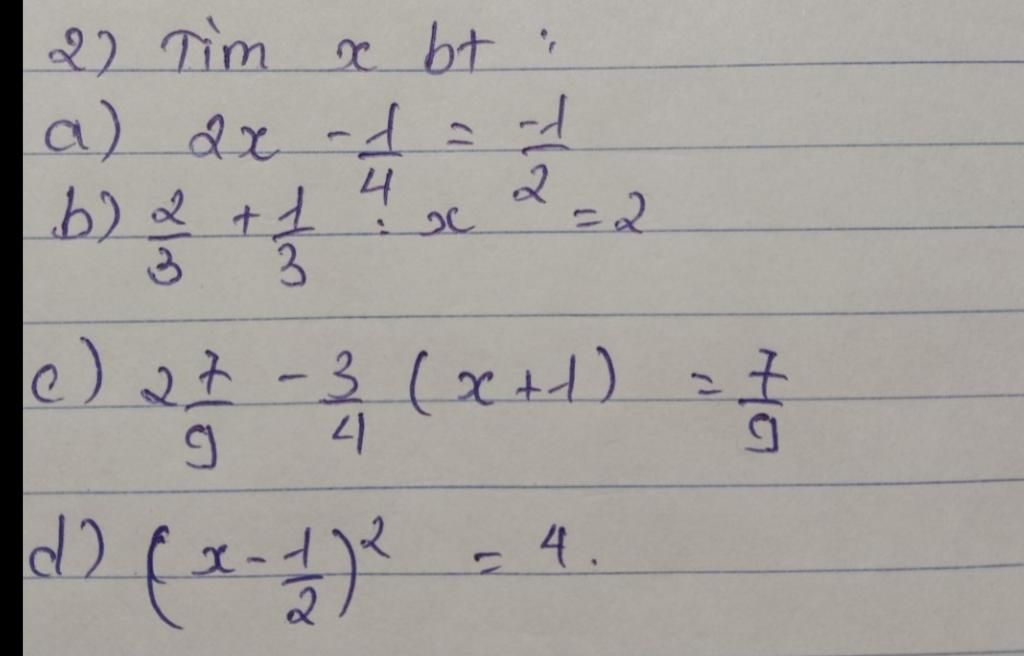 2) Tìm x bt :
a) 2x - 1/4 = -1/2
b) 2/3 + 1/3 : x = 2
c) 2 7/9 - 3/4 (x+1) = 7/9
d) (x - 1/2)² = 4.